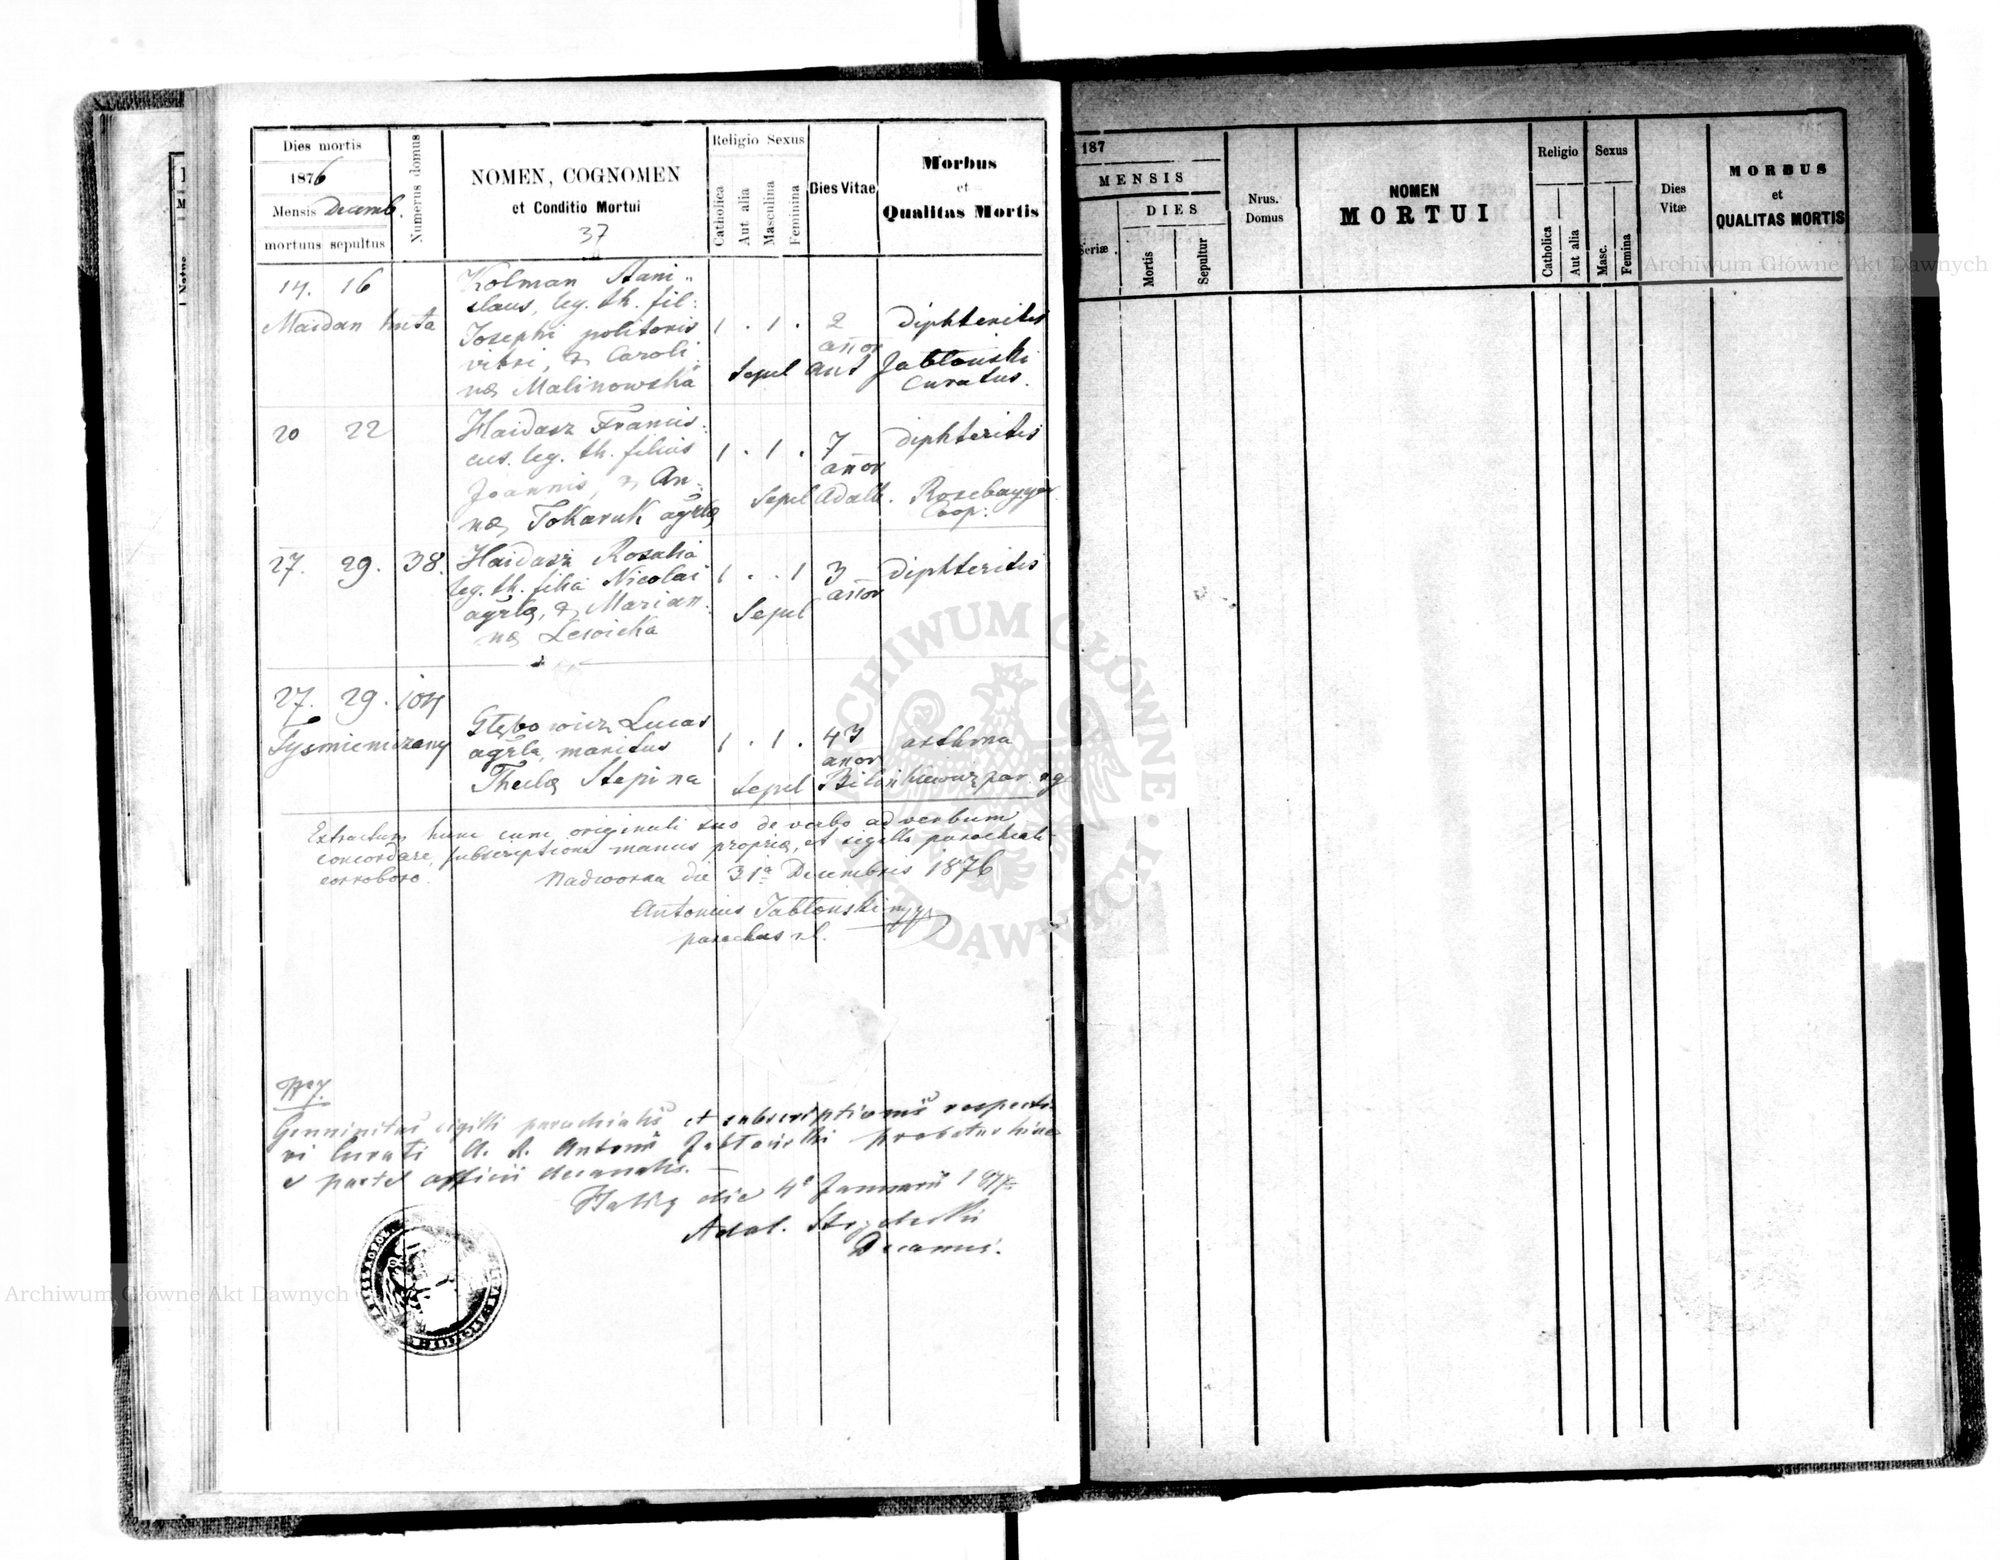 Dies mortis
1876
Mensis Decemb.
mortuus sepultus
Numerus domus
NOMEN, COGNOMEN
et Conditio Mortui
37
Religio Sexus
Catholica
Aut alia
Masculina
Feminina
Dies Vitae
Morbus
et
Qualitas Mortis
14. 16
Maidan huta
Kolman Stani„
slaus, leg. th. fil:
Josephi politoris
vitri, & Caroli„
næ Malinowska
1 . 1 . 2
añor
diphteritis
Sepel Ant Jabłoński
Curatus.
20 22
Haidasz Francis„
cus. leg. th. filius
Joannis, & An„
næ Tokaruk agrlæ
1 . 1 . 7
añor
diphteritis
Sepel Adalb. Rosebayger
Coop.
27. 29. 38.
Haidasz Rosalia
leg. th. filia Nicolai
agrlæ, & Marian„
næ Lewicka
1 . . 1 3
añor
diphteritis
Sepel
27. 29. 104
Tysmieniczany
Głębowicz Lucas
agrla, maritus
Theclæ Stepina
1 . 1 . 43
anor
asthma
Sepel Bilinkiewicz par. r. g.
Extractum hunc cum originali suo de verbo ad verbum
concordare, subscriptione manus propriæ, et sigillo parochiali
corroboro.
Nadworna die 31a Decembris 1876
Antonius Jabłoński mpp
parochus r.l.
Genuinitas sigilli parochialis et subscriptionis respecti„
vi Curati A. R. Antonii Jabłoński probatur hisce
e parte officii decanalis. —
die 4a Januarii 1877
Adal.
Decanus.
187
MENSIS
Seriæ
DIES
Mortis
Sepultur
Nrus.
Domus
NOMEN
MORTUI
Religio
Catholica
Aut alia
Sexus
Masc.
Femina
Dies
Vitæ
MORBUS
et
QUALITAS MORTIS
Archiwum Główne Akt Dawnych
ARCHIWUM GŁÓWNE AKT DAWNYCH
Archiwum Główne Akt Dawnych